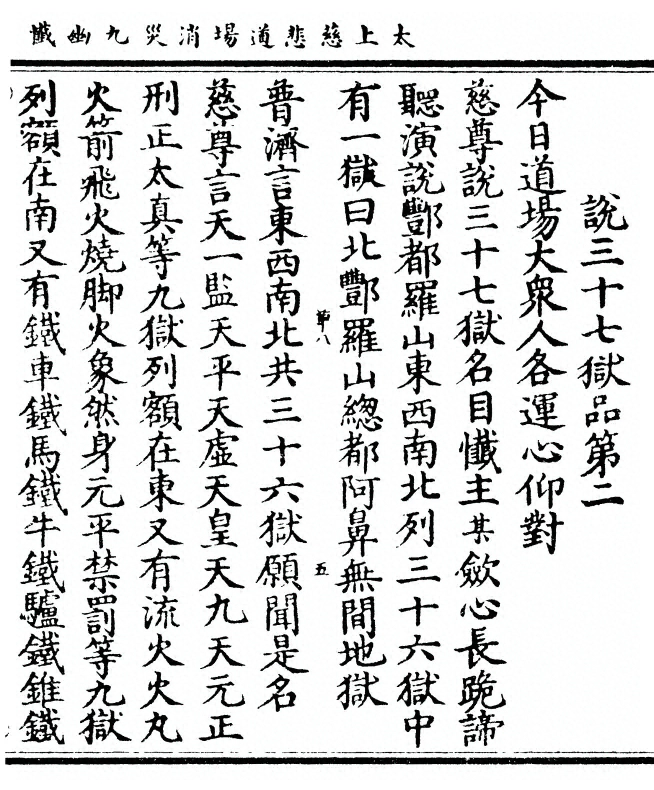 太上慈悲道場消災九幽懺
說三十七獄品第二
今日道場大衆人各運心仰對
慈尊說三十七獄名目懺主某歛心長跪諦
聽演說酆都羅山東西南北列三十六獄中
有一獄曰北酆羅山總都阿鼻無間地獄
第八 五
普濟言東西南北共三十六獄願聞是名
慈尊言天一監天平天虛天皇天九天元正
刑正太真等九獄列額在東又有流火火丸
火箭飛火燒脚火象然身元平禁罰等九獄
列額在南又有鐵車鐵馬鐵牛鐵驢鐵錐鐵